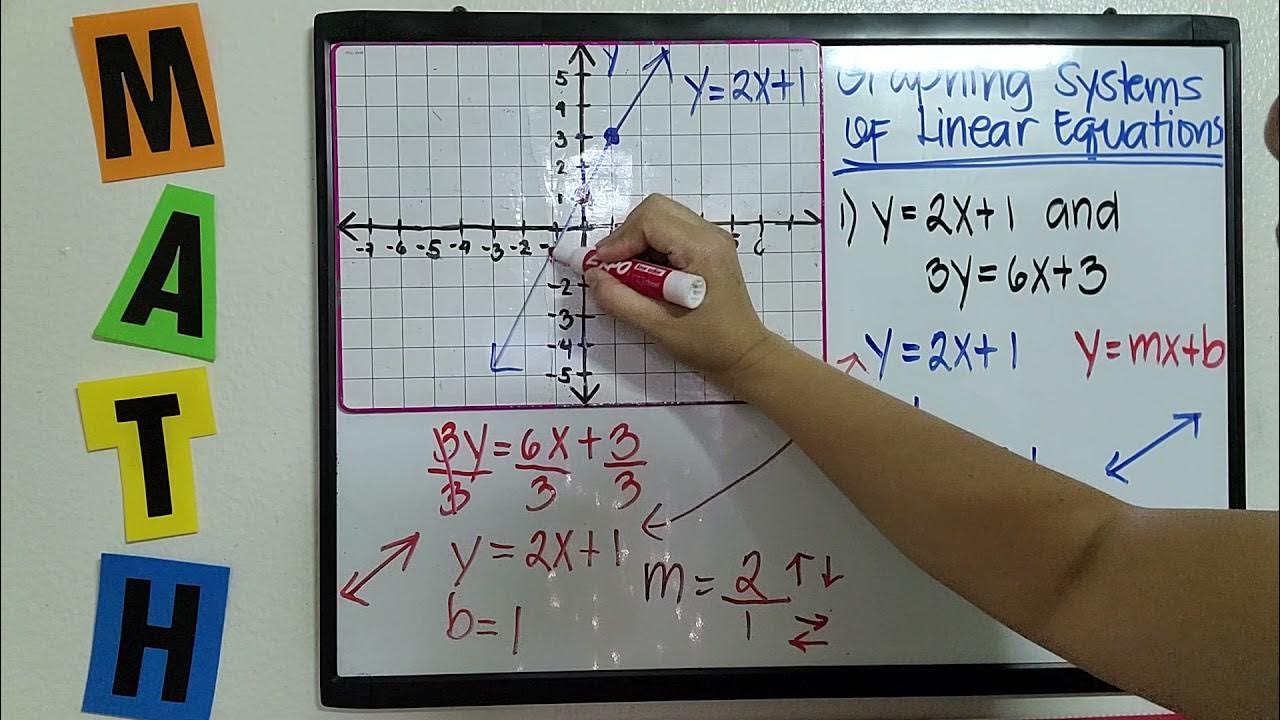 M
A
T
H
Y
5
4
3
2
1
-7 -6 -5 -4 -3 -2
-2
-3
-4
-5
Y=2X+1
Graphing Systems
OF Linear Equations
1) Y=2X+1 and
3Y=6X+3
Y=2X+1
Y=mX+b
3Y=6X+3
3 3 3
y=2X+1
b=1
m=2
1
EXPO